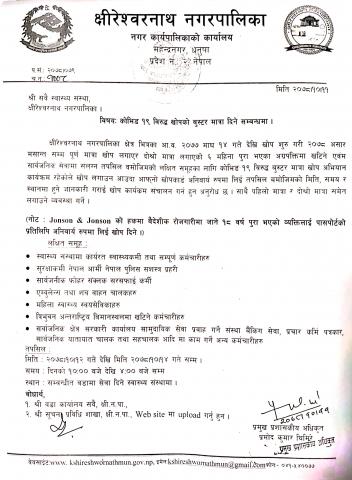 क्षीरेश्वरनाथ नगरपालिका
नगर कार्यपालिकाको कार्यालय
महेन्द्रनगर, धनुषा
प्रदेश नं. २ नेपाल
प.सं. २०७८/०७९
च.नं.
मिति २०७८/१०/११
श्री सवै स्वास्थ्य संस्था,
क्षीरेश्वरनाथ नगरपालिका ।
विषय: कोभिड १९ विरुद्ध खोपको बुस्टर मात्रा दिने सम्वन्धमा ।
क्षीरेश्वरनाथ नगरपालिका क्षेत्र भित्रका आ.व. २०७७ माघ १४ गते देखि खोप शुरु गरी २०७८ असार
मसान्त सम्म पूर्ण मात्रा खोप लगाएर दोश्रो मात्रा लगाएको ६ महिना पुरा भएका अग्रपंक्तिमा खटिने एवंम
सार्वजनिक सेवामा संलग्न तपसिल वमोजिमको लक्षित समुहका लागि कोभिड १९ विरुद्ध बुस्टर मात्रा खोप अभियान
कार्यक्रम रहेकोले खोप लगाउन आउदा आफ्नो खोपकार्ड अनिवार्य रुपमा लिई तपसिल वमोजिमको मिति, समय र
स्थानमा हुने जानकारी गराई खोप कार्यक्रम संचालन गर्न हुन अनुरोध छ । साथै पहिलो मात्रा र दोश्रो मात्रा समेत
लगाउने व्यवस्था गर्ने ।
(नोट : Jonson & Jonson को हकमा वैदेशीक रोजगारीमा जाने १८ वर्ष पुरा भएको व्यक्तिलाई पासपोर्टको
प्रतिलिपि अनिवार्य रुपमा लिई खोप दिने ।)
लक्षित समूह :
• स्वास्थ्य संस्थामा कार्यरत स्वास्थ्यकर्मी तथा सम्पूर्ण कर्मचारीहरु
• सुरक्षाकर्मी नेपाल आर्मी नेपाल पुलिस सशस्त्र प्रहरी
• सार्वजनीक फोहर संकलक सरसफाई कर्मी
• एम्वुलेन्स तथा शव वाहन चालकहरु
• महिला स्वास्थ्य स्वयंसेविकाहरु
• त्रिभुवन अन्तराष्ट्रिय विमानस्थलमा खटिने कर्मचारीहरु
• सार्वजनिक क्षेत्र सरकारी कार्यालय सामुदायिक सेवा प्रवाह गर्ने संस्था बैंकिङ सेवा, प्रचार कर्मि पत्रकार,
सार्वजनिक यातायात चालक तथा सहचालक आदि मा काम गर्ने अन्य कर्मचारीहरु
तपसिल :
मिति : २०७८/१०/१२ गते देखि मिति २०७८/१०/१४ गते सम्म ।
समय : दिनको १०:०० बजे देखि ४:०० बजे सम्म
स्थान : सम्वन्धीत वडामा सेवा दिने स्वास्थ्य संस्थामा ।
बोधार्थ,
१. श्री वडा कार्यालय सवै, क्षी.न.पा.,
२. श्री सूचना प्रविधि शाखा, क्षी.न.पा., Web site मा upload गर्नु हुन ।
२०७८/१०/११
प्रमुख प्रशासकीय अधिकृत
प्रमोद कुमार घिमिरे
वेवसाईट: www.kshireshwornathmun.gov.np, इमेल: kshireshwornathmun@gmail.com